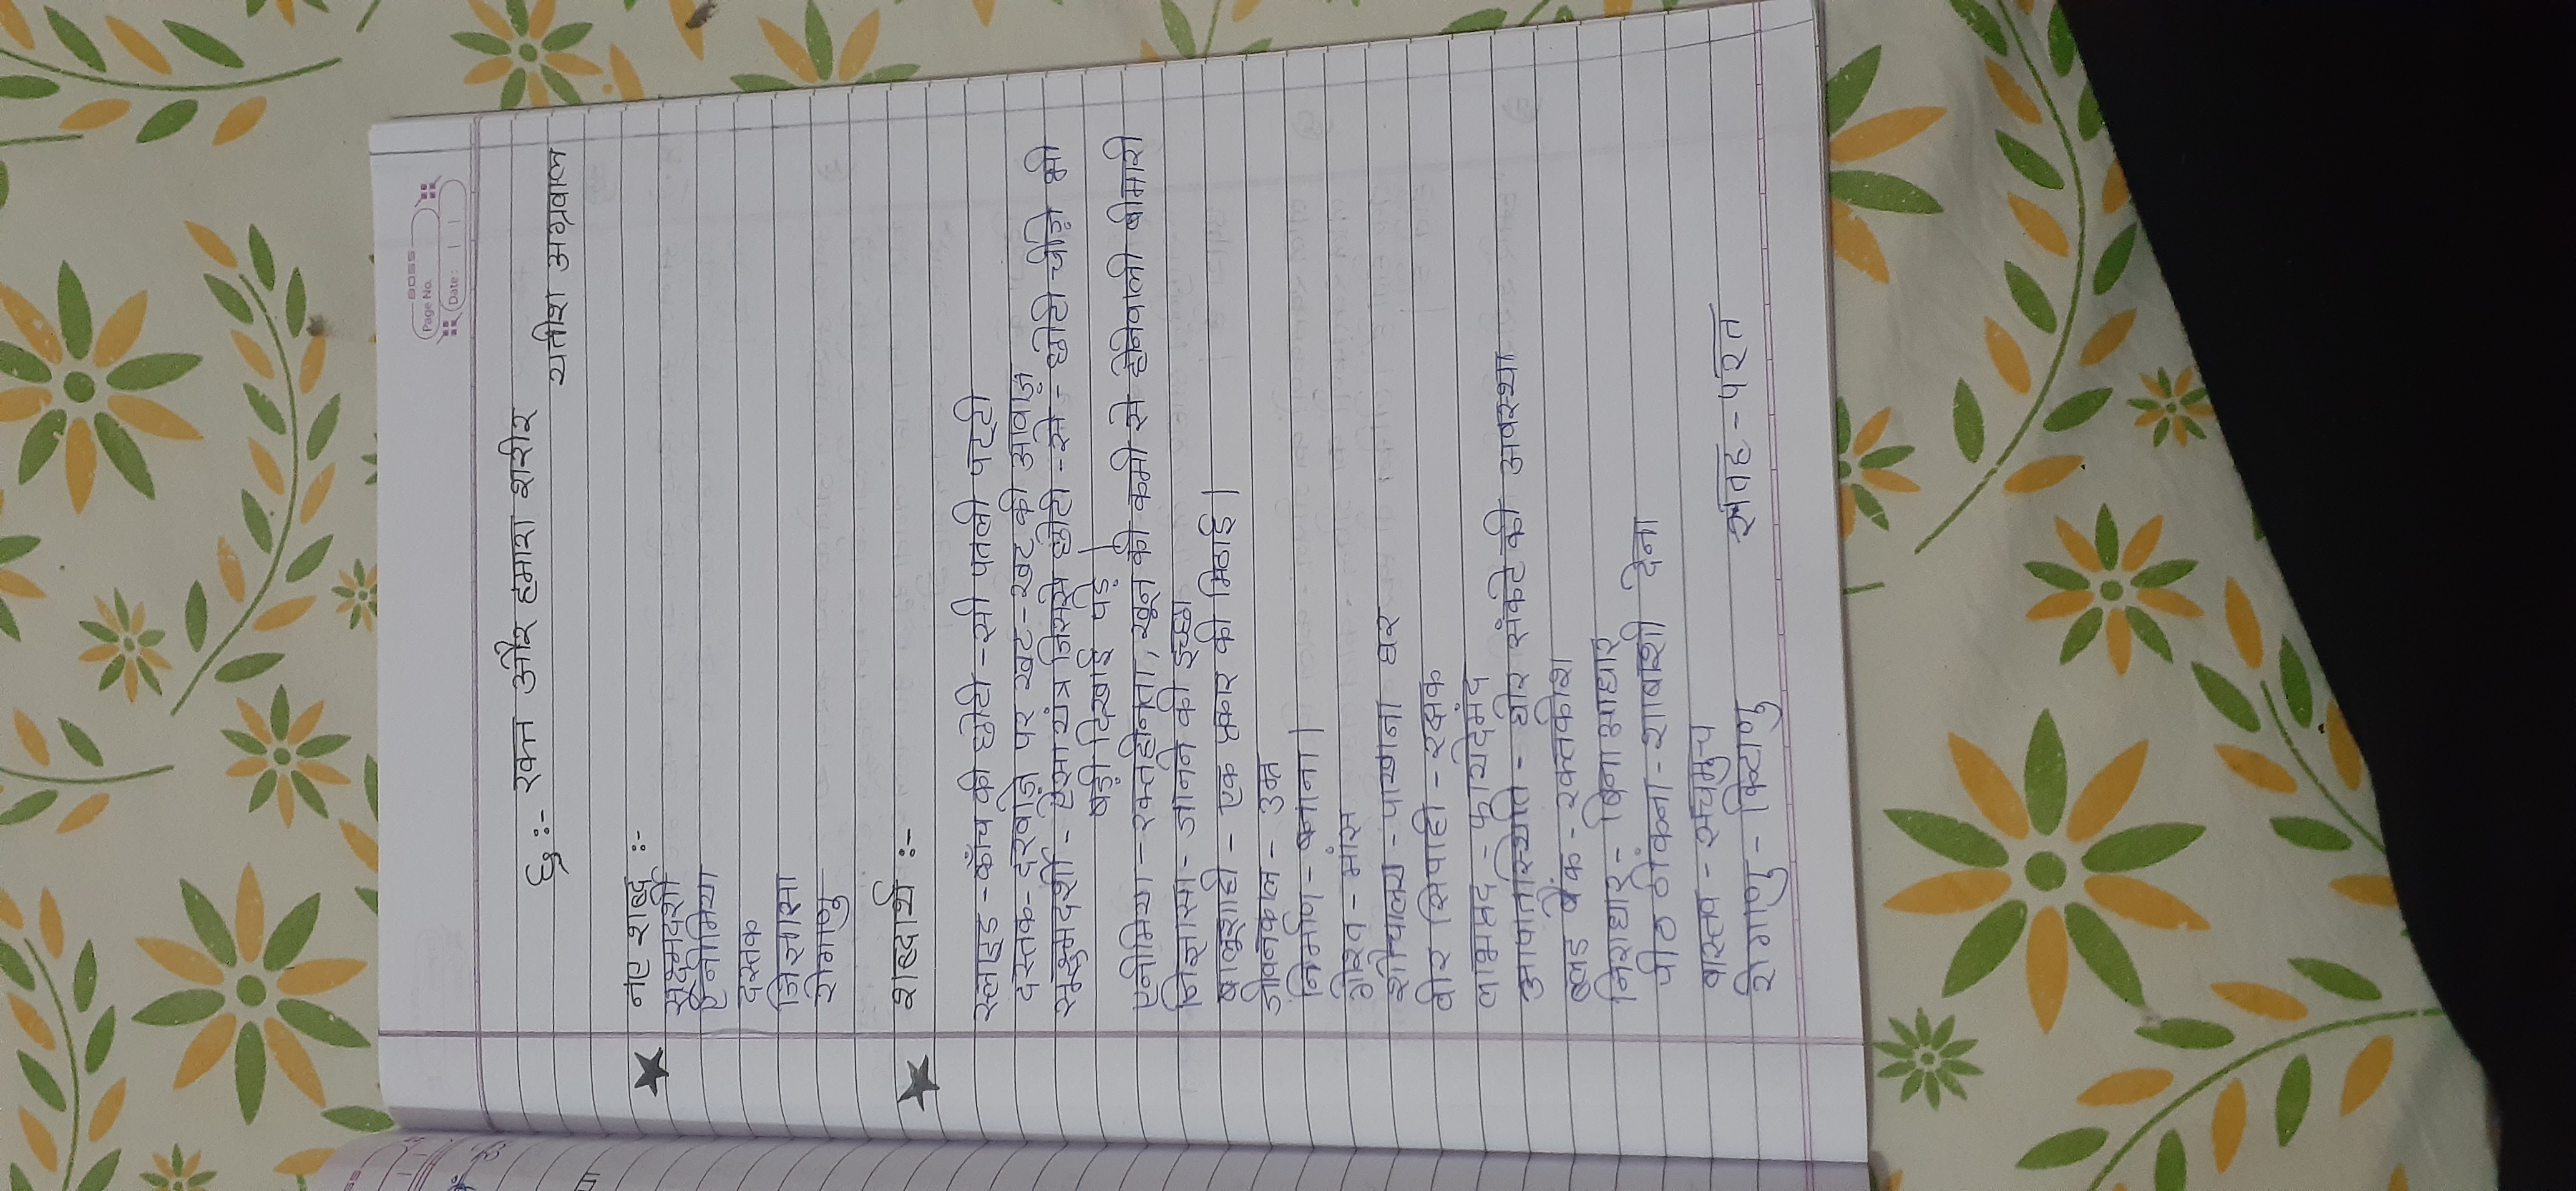 BOSS
Page No.
Date: | |
६ :- रक्त और हमारा शरीर
यतीश अग्रवाल
★ नए शब्द :-
सूक्ष्मदर्शी
एनीमिया
दस्तक
जिज्ञासा
रोगाणु
★ शब्दार्थ :-
स्लाइड - काँच की छोटी - सी पतली पट्टी
दस्तक - दरवाज़े पर खट - खट की आवाज़
सूक्ष्मदर्शी - ऐसा यंत्र जिससे छोटी - से - छोटी चीज़े भी
बड़ी दिखाई पड़े |
एनीमिया - रक्तहीनता, खून की कमी से होनेवाली बीमारी
जिज्ञासा - जानने की इच्छा
बालूशाही - एक प्रकार की मिठाई |
जीवनकाल - उम्र
निर्माण - बनाना |
गोश्त - मांस
शौचालय - पाखाना घर
वीर सिपाही - रक्षक
लाभप्रद - फायदेमंद
आपातस्थिति - घोर संकट की अवस्था
ब्लड बैंक - रक्तकोश
निराधार - बिना आधार
पीठ ठोंकना - शाबाशी देना
वास्तव - सचमुच
रोगाणु - किटाणु सतह - परत